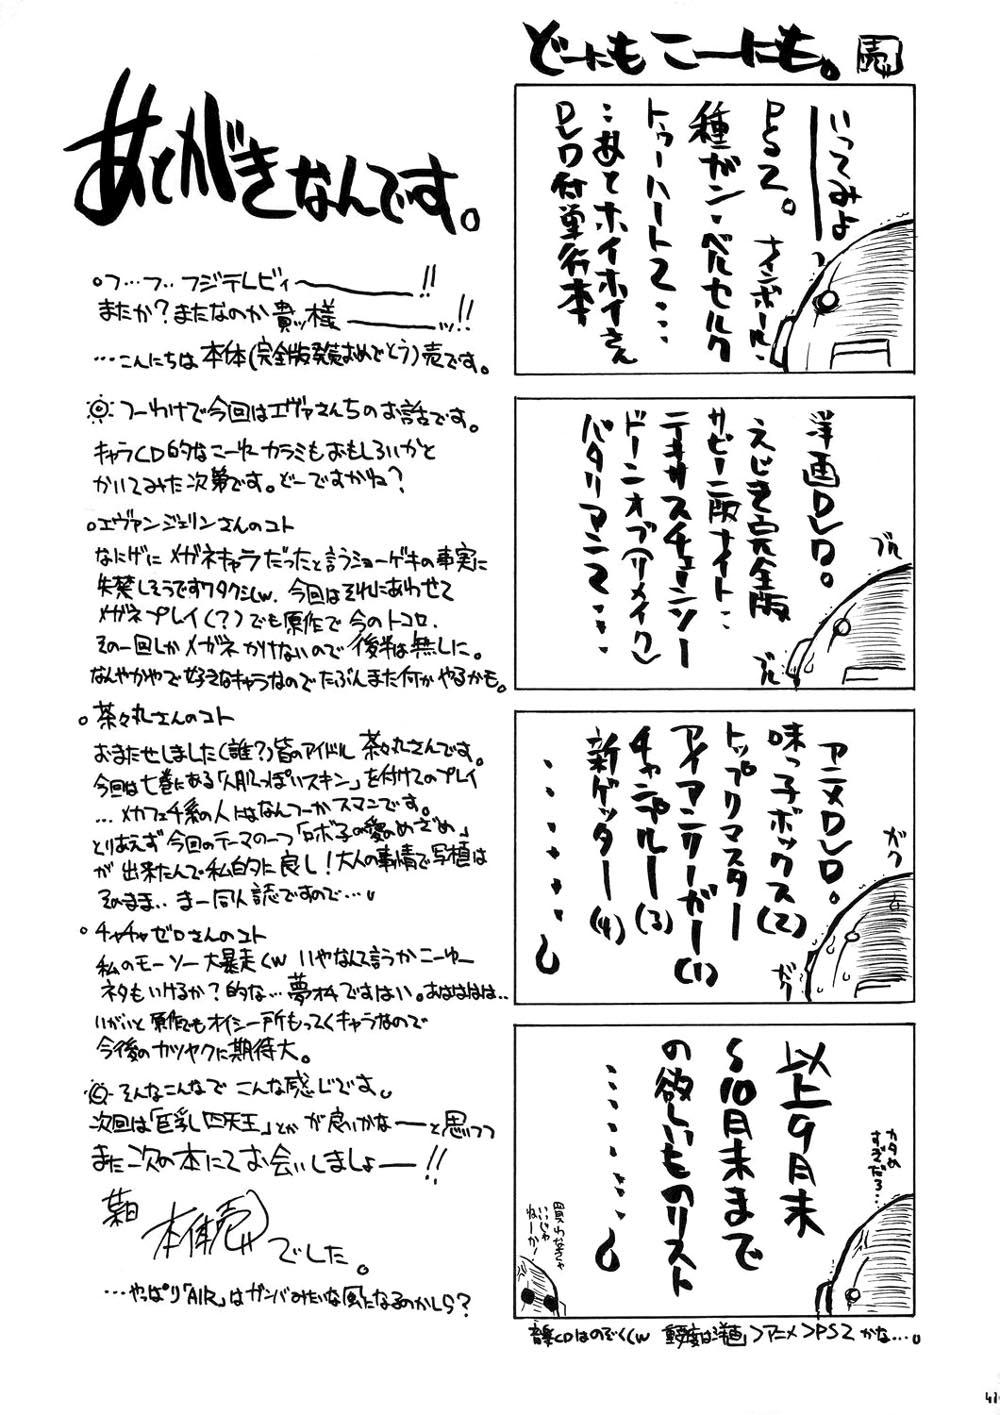 どーにもこーにも。売
いってみよー
PS2。ナインボール・
種ガン・ベルセルク
トゥーハート2...
:あとホイホイさん
DVD付単行本
洋画DVD。
えじき完全版
サビーニ版ナイト:
テキサスチェーンソー
ドーンオブ(リメイク)
バタリアン2・・・
ブル
ブル
アニメDVD。
味っ子ボックス(2)
トップリマスター
アイアンリーガー(1)
チャンプルー(3)
新ゲッター(4)
・・・・・・。
ガク
ガク
以上9月末
〜10月末まで
の欲しいものリスト
・・・・・・。
カタめ
すぎだろ...
買わなきゃ
いいじゃ
ねーか!
音楽CDはのぞく(w 重要度は洋画>アニメ>PS2かな...。
あとがきなんです。
○フ...フ..フジテレビィ〜――!!
またか?またなのか貴ッ様――ッ!!
...こんにちは本体(完全版発売おめでとう)売です。
◎つーわけで今回はエヴァさんちのお話です。
キャラCD的なこーゆーカラミもおもしろいかと
かいてみた次第です。どーですかね?
○エヴァンジェリンさんのコト
なにげにメガネキャラだったと言うショーゲキの事実に
失禁しそうですワタクシ(w. 今回はそれにあわせて
メガネプレイ(?)でも原作で今のトコロ.
その一回しかメガネかけないので後半は無しに。
なんやかやで好きなキャラなのでたぶんまた何かやるかも。
○茶々丸さんのコト
おまたせしました(誰?)皆のアイドル茶々丸さんです。
今回は七巻にある「人肌っぽいスキン」を付けてのプレイ
...メカフェチ系の人にはなんつーかスマンです。
とりあえず今回のテーマの一つ「ロボ子の愛のめざめ」
が出来たんで私的に良し!大人の事情で写植は
そのまま..まー同人誌ですので...。
○チャチャゼロさんのコト
私のモーソー大暴走(w いやなんて言うかこーゆー
ネタもいけるか?的な...夢オチですはい。あはははは..
いがいと原作でもオイシー所もってくキャラなので
今後のカツヤクに期待大。
◎そんなこんなでこんな感じです。
次回は「巨乳四天王」とかが良いかなーと思いつつ
また次の本にてお会いしましょー!!
本体売でした。
...やっぱり「AIR」はガンバみたいな風になるのかしら?
41